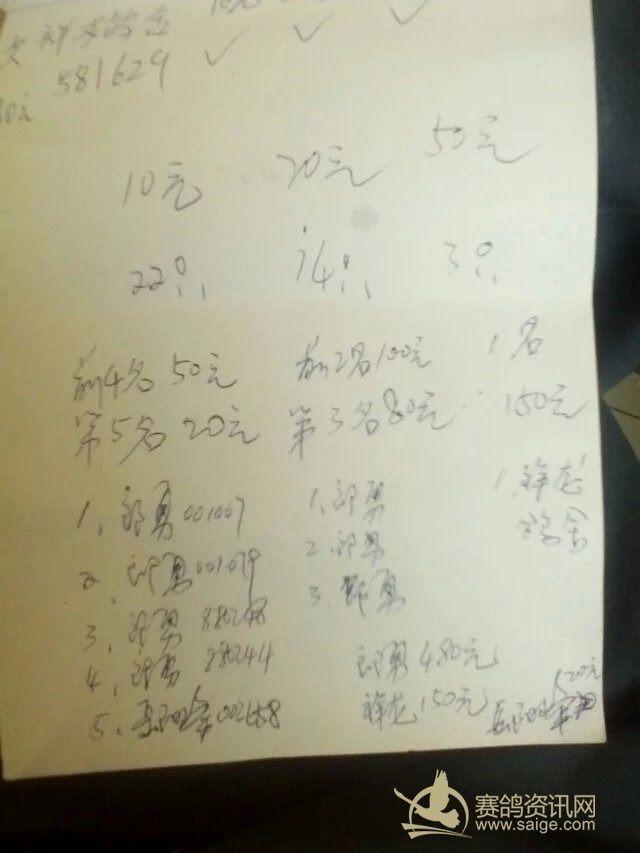 10元
581629 ✓ ✓ ✓
10元 20元 50元
22只 14只 3只
前4名 50元 前2名100元 1名
第5名 20元 第3名80元 150元
1、郎勇 001007 1、郎勇 1、祥龙
鸽舍
2、郎勇 001079 2、郎勇
3、郎勇 3、郎勇
4、郎勇 郎勇 480元
5、 祥龙 150元 20元
赛鸽资讯网
www.saige.com